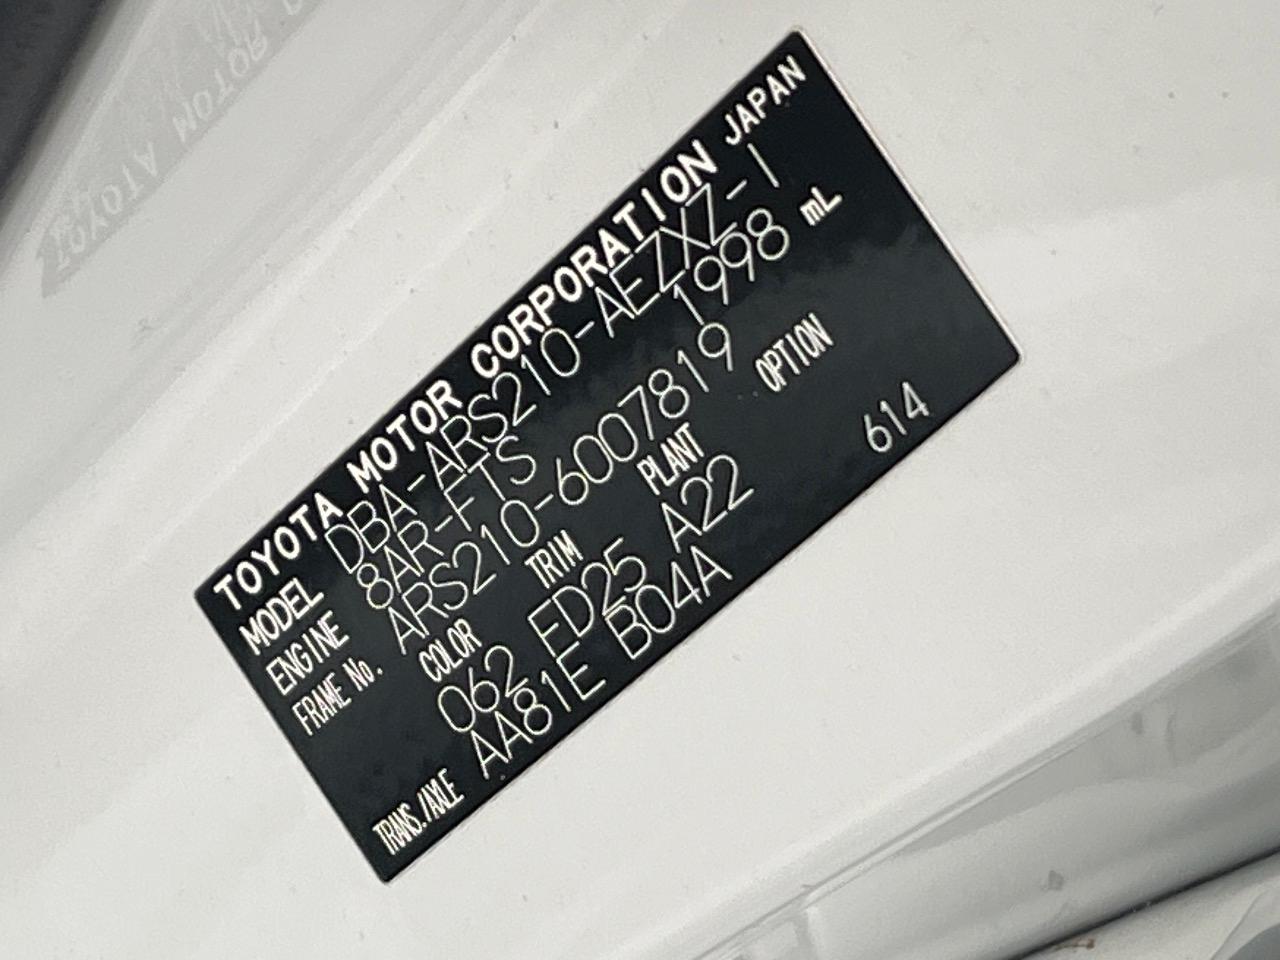 TOYOTA MOTOR CORPORATION JAPAN
MODEL DBA-ARS210-AEZXZ-1
ENGINE 8AR-FTS 1998 mL
FRAME No. ARS210-6007819
COLOR TRIM PLANT OPTION
062 FD25 A22 614
TRANS./AXLE AA81E B04A